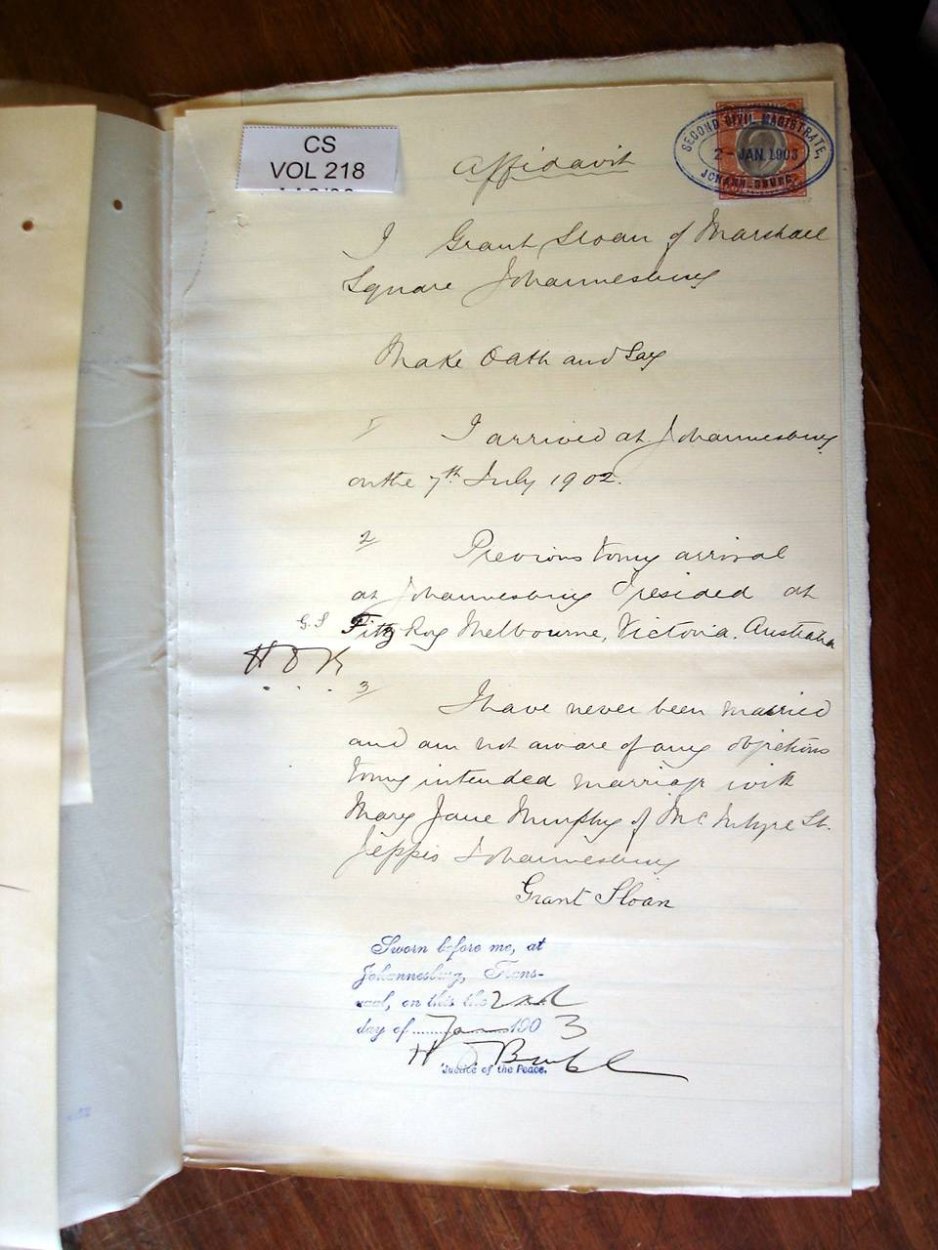 CS
VOL 218
Affidavit
SECOND CIVIL MAGISTRATE,
2 - JAN. 1903
JOHANNESBURG
I Grant Sloan of Marshall
Square Johannesburg
Make Oath and Say
1 I arrived at Johannesburg
on the 7th July 1902.
2 Previous to my arrival
at Johannesburg I resided at
G.S Fitz Roy Melbourne, Victoria. Australia
3 I have never been married
and am not aware of any objections
to my intended marriage with
Mary Jane Murphy of McIntyre St.
Jeppis Johannesburg
Grant Sloan
Sworn before me, at
Johannesburg, Trans-
vaal, on this the 2nd
day of Jan 1903
H
Justice of the Peace.